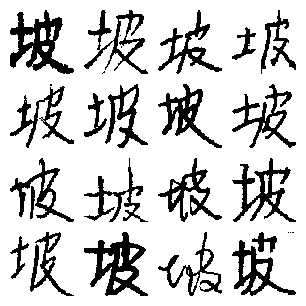 坡坡坡坡
坡坡坡坡
坡坡坡坡
坡坡坡坡